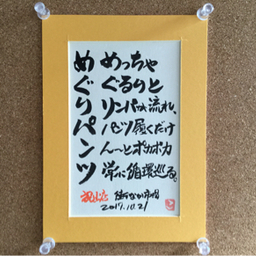 めぐりパンツ
めっちゃ
ぐるりと
リンパが流れ、
パンツ履くだけ
ん〜とポカポカ
常に循環巡る。
2017.10.21